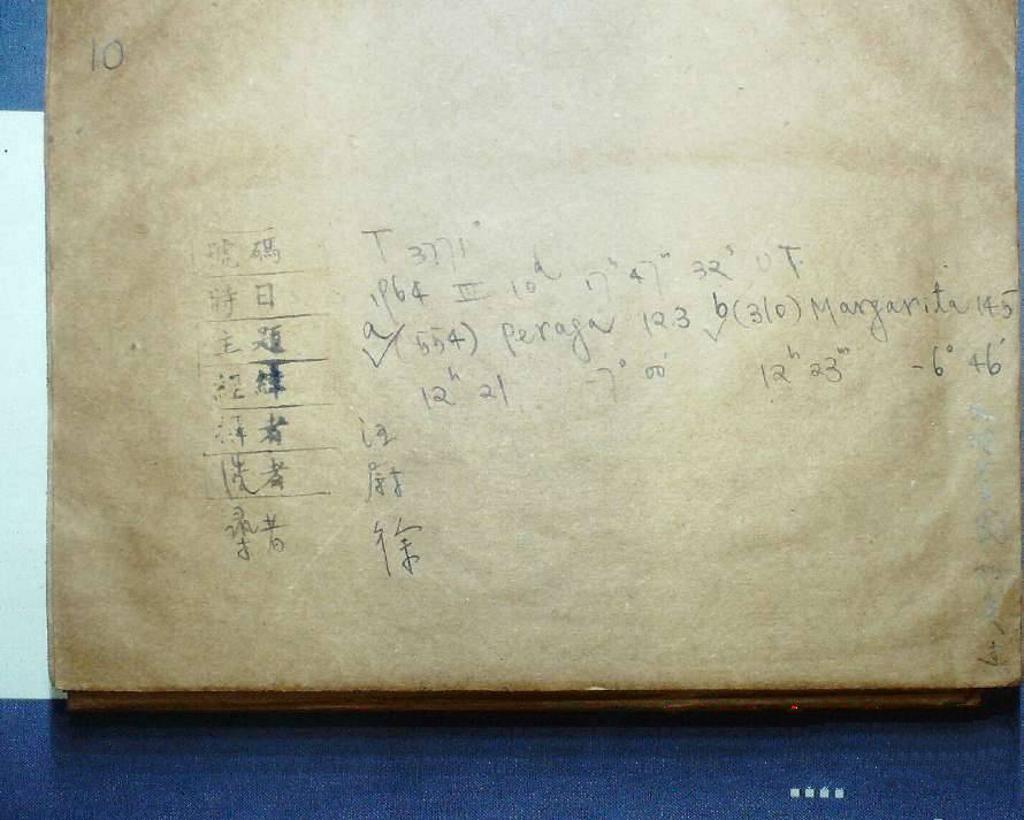 10
號碼 T 3771
時日 1964 III 10d 17h 47m 32s UT
主題 a (554) Peraga 123 b (310) Margarita 145
經緯 12h 21 -7° 00' 12h 23m -6° 46'
擇者 汪
者
者 徐